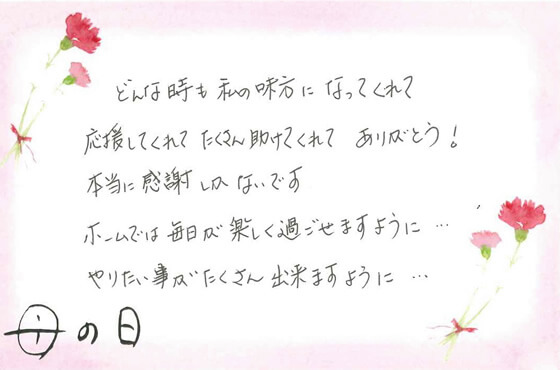 どんな時も 私の味方に なってくれて
応援してくれて たくさん助けてくれて ありがとう！
本当に感謝しかないです
ホームでは毎日が楽しく過ごせますように…
やりたい事がたくさん出来ますように…
母の日